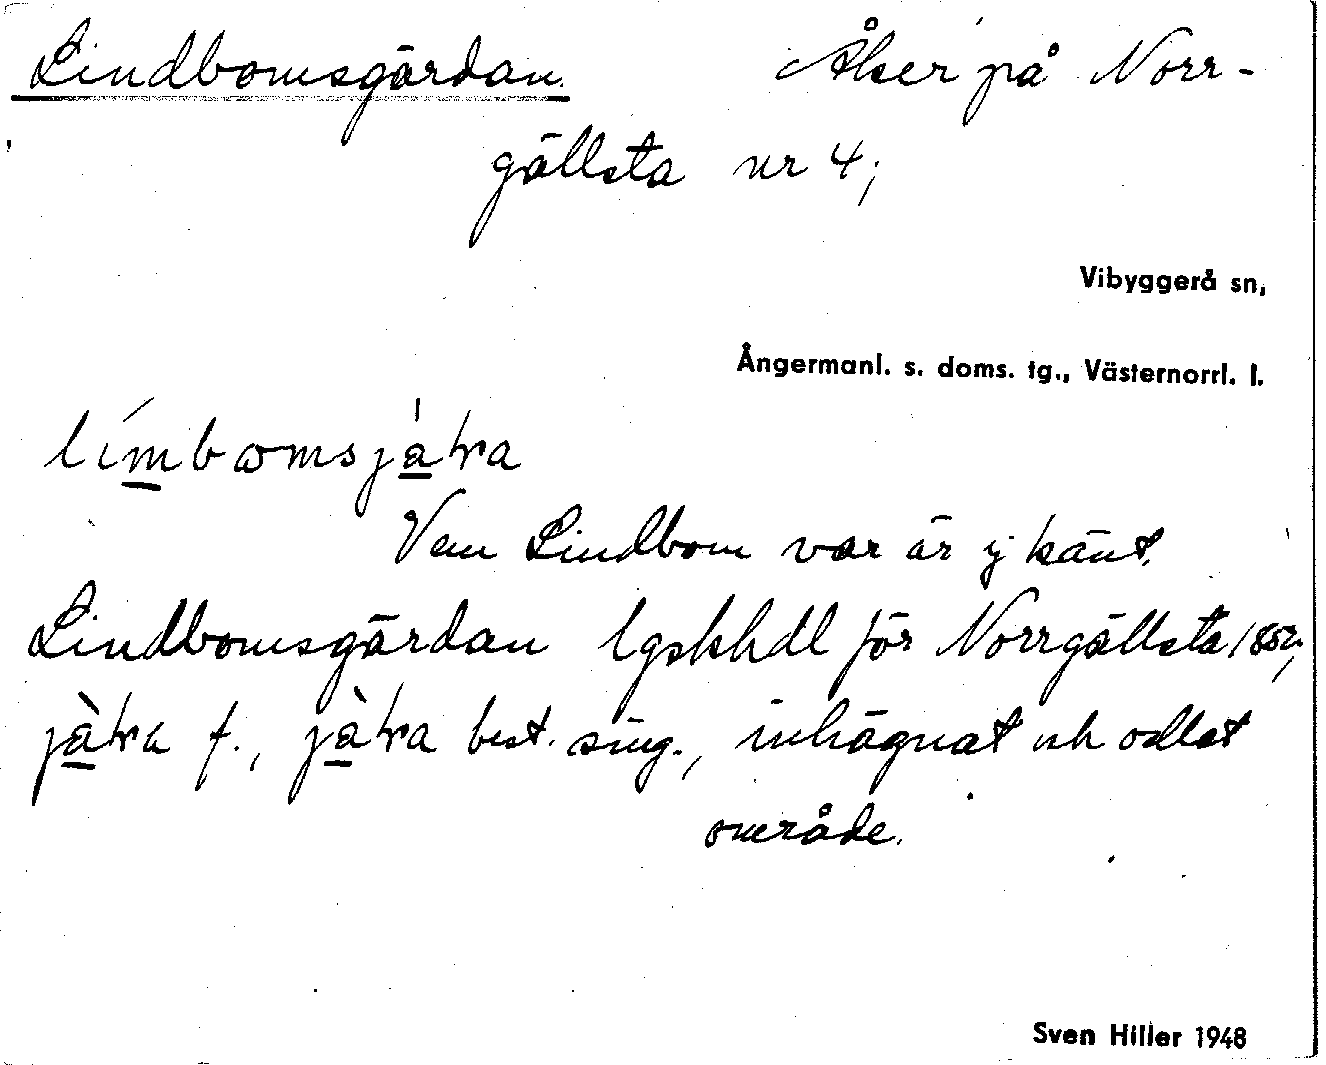 Lindbomsgärdan. Åker på Norr-
gällsta nr 4;
Vibyggerå sn,
Ångermanl. s. doms. tg., Västernorrl. l.
Vem Lindbom var är ej känt.
Lindbomsgärdan lgskhdl för Norrgällsta
f., best. sing., inhägnat och odlat
område.
Sven Hiller 1948